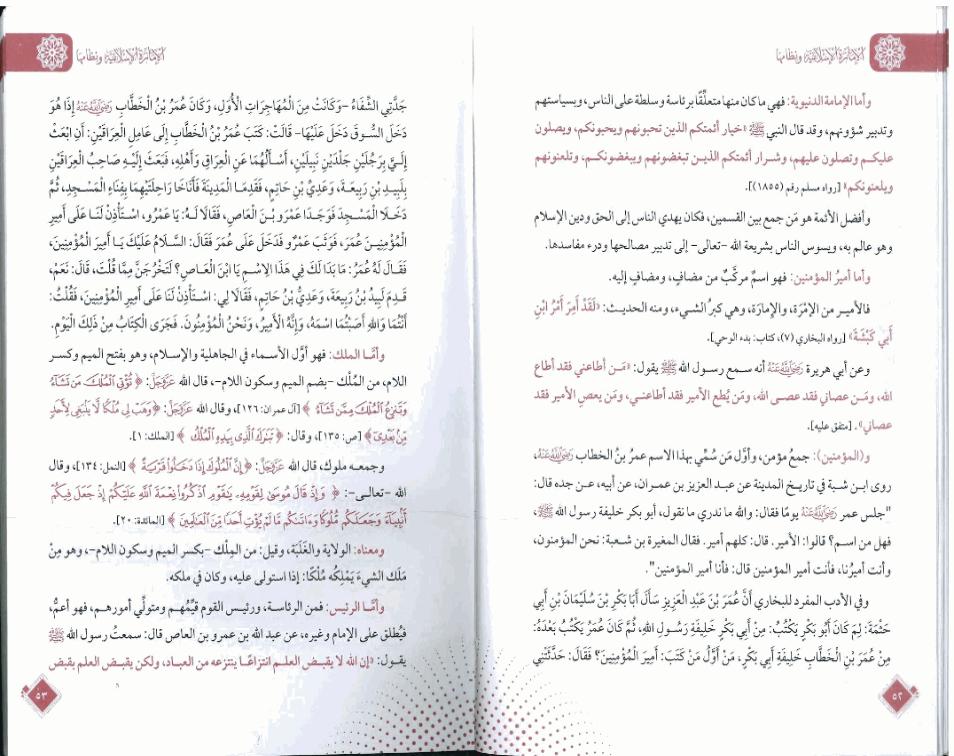 الإمارة الإسلامية ونظامها
وأما الإمامة الدنيوية: فهي ما كان منها متعلِّقًا برئاسة وسلطة على الناس، وبسياستهم
وتدبير شؤونهم، وقد قال النبي ﷺ «خيار أئمتكم الذين تحبونهم ويحبونكم، ويصلون
عليكم وتصلون عليهم، وشرار أئمتكم الذين تبغضونهم ويبغضونكم، وتلعنونهم
ويلعنونكم» [رواه مسلم رقم (١٨٥٥)].
وأفضل الأئمة هو مَن جمع بين القسمين، فكان يهدي الناس إلى الحق ودين الإسلام
وهو عالم به، ويسوس الناس بشريعة الله -تعالى- إلى تدبير مصالحها ودرء مفاسدها.
وأما أميرُ المؤمنين: فهو اسمٌ مركَّبٌ من مضافٍ، ومضافٍ إليه.
فالأمير من الإمْرَة، والإمارَة، وهي كبرُ الشيء، ومنه الحديث: «لَقَدْ أَمِرَ أَمْرُ ابْنِ
أَبِي كَبْشَةَ» [رواه البخاري (٧)، كتاب: بدء الوحي].
وعن أبي هريرة رَضِيَ اللَّهُ عَنْهُ أنه سمع رسول الله ﷺ يقول: «مَن أطاعني فقد أطاع
الله، ومَن عصاني فقد عصى الله، ومَن يُطع الأمير فقد أطاعني، ومَن يعصِ الأمير فقد
عصاني». [متفق عليه].
و(المؤمنين): جمعُ مؤمن، وأوَّل مَن سُمِّي بهذا الاسم عمرُ بنُ الخطاب رَضِيَ اللَّهُ عَنْهُ،
روى ابن شبة في تاريخ المدينة عن عبد العزيز بن عمران، عن أبيه، عن جده قال:
"جلس عمر رَضِيَ اللَّهُ عَنْهُ يومًا فقال: والله ما ندري ما نقول، أبو بكر خليفة رسول الله ﷺ،
فهل من اسم؟ قالوا: الأمير. قال: كلهم أمير. فقال المغيرة بن شعبة: نحن المؤمنون،
وأنت أميرُنا، فأنت أمير المؤمنين قال: فأنا أمير المؤمنين".
وفي الأدب المفرد للبخاري أَنَّ عُمَرَ بْنَ عَبْدِ الْعَزِيزِ سَأَلَ أَبَا بَكْرِ بْنَ سُلَيْمَانَ بْنِ أَبِي
حَثْمَةَ: لِمَ كَانَ أَبُو بَكْرٍ يَكْتُبُ: مِنْ أَبِي بَكْرٍ خَلِيفَةِ رَسُولِ اللهِ، ثُمَّ كَانَ عُمَرُ يَكْتُبُ بَعْدَهُ:
مِنْ عُمَرَ بْنِ الْخَطَّابِ خَلِيفَةِ أَبِي بَكْرٍ، مَنْ أَوَّلُ مَنْ كَتَبَ: أَمِيرَ الْمُؤْمِنِينَ؟ فَقَالَ: حَدَّثَتْنِي
٥٢
الإمارة الإسلامية ونظامها
جَدَّتِي الشِّفَاءُ -وَكَانَتْ مِنَ الْمُهَاجِرَاتِ الْأُوَلِ، وَكَانَ عُمَرُ بْنُ الْخَطَّابِ رَضِيَ اللَّهُ عَنْهُ إِذَا هُوَ
دَخَلَ السُّوقَ دَخَلَ عَلَيْهَا- قَالَتْ: كَتَبَ عُمَرُ بْنُ الْخَطَّابِ إِلَى عَامِلِ الْعِرَاقَيْنِ: أَنِ ابْعَثْ
إِلَيَّ بِرَجُلَيْنِ جَلْدَيْنِ نَبِيلَيْنِ، أَسْأَلُهُمَا عَنِ الْعِرَاقِ وَأَهْلِهِ، فَبَعَثَ إِلَيْهِ صَاحِبُ الْعِرَاقَيْنِ
بِلَبِيدِ بْنِ رَبِيعَةَ، وَعَدِيِّ بْنِ حَاتِمٍ، فَقَدِمَا الْمَدِينَةَ فَأَنَاخَا رَاحِلَتَيْهِمَا بِفِنَاءِ الْمَسْجِدِ، ثُمَّ
دَخَلَا الْمَسْجِدَ فَوَجَدَا عَمْرَو بْنَ الْعَاصِ، فَقَالَا لَهُ: يَا عَمْرُو، اسْتَأْذِنْ لَنَا عَلَى أَمِيرِ
الْمُؤْمِنِينَ عُمَرَ، فَوَثَبَ عَمْرٌو فَدَخَلَ عَلَى عُمَرَ فَقَالَ: السَّلَامُ عَلَيْكَ يَا أَمِيرَ الْمُؤْمِنِينَ،
فَقَالَ لَهُ عُمَرُ: مَا بَدَا لَكَ فِي هَذَا الِاسْمِ يَا ابْنَ الْعَاصِ؟ لَتَخْرُجَنَّ مِمَّا قُلْتَ، قَالَ: نَعَمْ،
قَدِمَ لَبِيدُ بْنُ رَبِيعَةَ، وَعَدِيُّ بْنُ حَاتِمٍ، فَقَالَا لِي: اسْتَأْذِنْ لَنَا عَلَى أَمِيرِ الْمُؤْمِنِينَ، فَقُلْتُ:
أَنْتُمَا وَاللهِ أَصَبْتُمَا اسْمَهُ، وَإِنَّهُ الْأَمِيرُ، وَنَحْنُ الْمُؤْمِنُونَ. فَجَرَى الْكِتَابُ مِنْ ذَلِكَ الْيَوْمِ.
وأمَّا الملك: فهو أوَّل الأسماء في الجاهلية والإسلام، وهو بفتح الميم وكسر
اللام، من المُلْك -بضم الميم وسكون اللام-، قال الله عَزَّوَجَلَّ: ﴿تُؤْتِي الْمُلْكَ مَن تَشَاءُ
وَتَنزِعُ الْمُلْكَ مِمَّن تَشَاءُ﴾ [آل عمران: ١٢٦]، وقال الله عَزَّوَجَلَّ: ﴿وَهَبْ لِي مُلْكًا لَّا يَنبَغِي لِأَحَدٍ
مِّن بَعْدِي﴾ [ص: ١٣٥]، وقال: ﴿تَبَارَكَ الَّذِي بِيَدِهِ الْمُلْكُ﴾ [الملك: ١].
وجمعه ملوك، قال الله عَزَّوَجَلَّ: ﴿إِنَّ الْمُلُوكَ إِذَا دَخَلُوا قَرْيَةً﴾ [النمل: ١٣٤]، وقال
الله -تعالى-: ﴿وَإِذْ قَالَ مُوسَىٰ لِقَوْمِهِ يَا قَوْمِ اذْكُرُوا نِعْمَةَ اللَّهِ عَلَيْكُمْ إِذْ جَعَلَ فِيكُمْ
أَنبِيَاءَ وَجَعَلَكُم مُّلُوكًا وَآتَاكُم مَّا لَمْ يُؤْتِ أَحَدًا مِّنَ الْعَالَمِينَ﴾ [المائدة: ٢٠].
ومعناه: الولاية والغَلَبَة، وقيل: من المِلْك -بكسر الميم وسكون اللام-، وهو مِنْ
مَلَك الشيءَ يَمْلِكُه مُلْكًا: إذا استولى عليه، وكان في ملكه.
وأمَّا الرئيس: فمن الرئاسة، ورئيس القوم قيِّمُهم ومتولِّي أمورهم، فهو أعمُّ،
فيُطلق على الإمام وغيره، عن عبد الله بن عمرو بن العاص قال: سمعتُ رسول الله ﷺ
يقول: «إن الله لا يقبض العلم انتزاعًا ينتزعه من العباد، ولكن يقبض العلم بقبض
٥٣